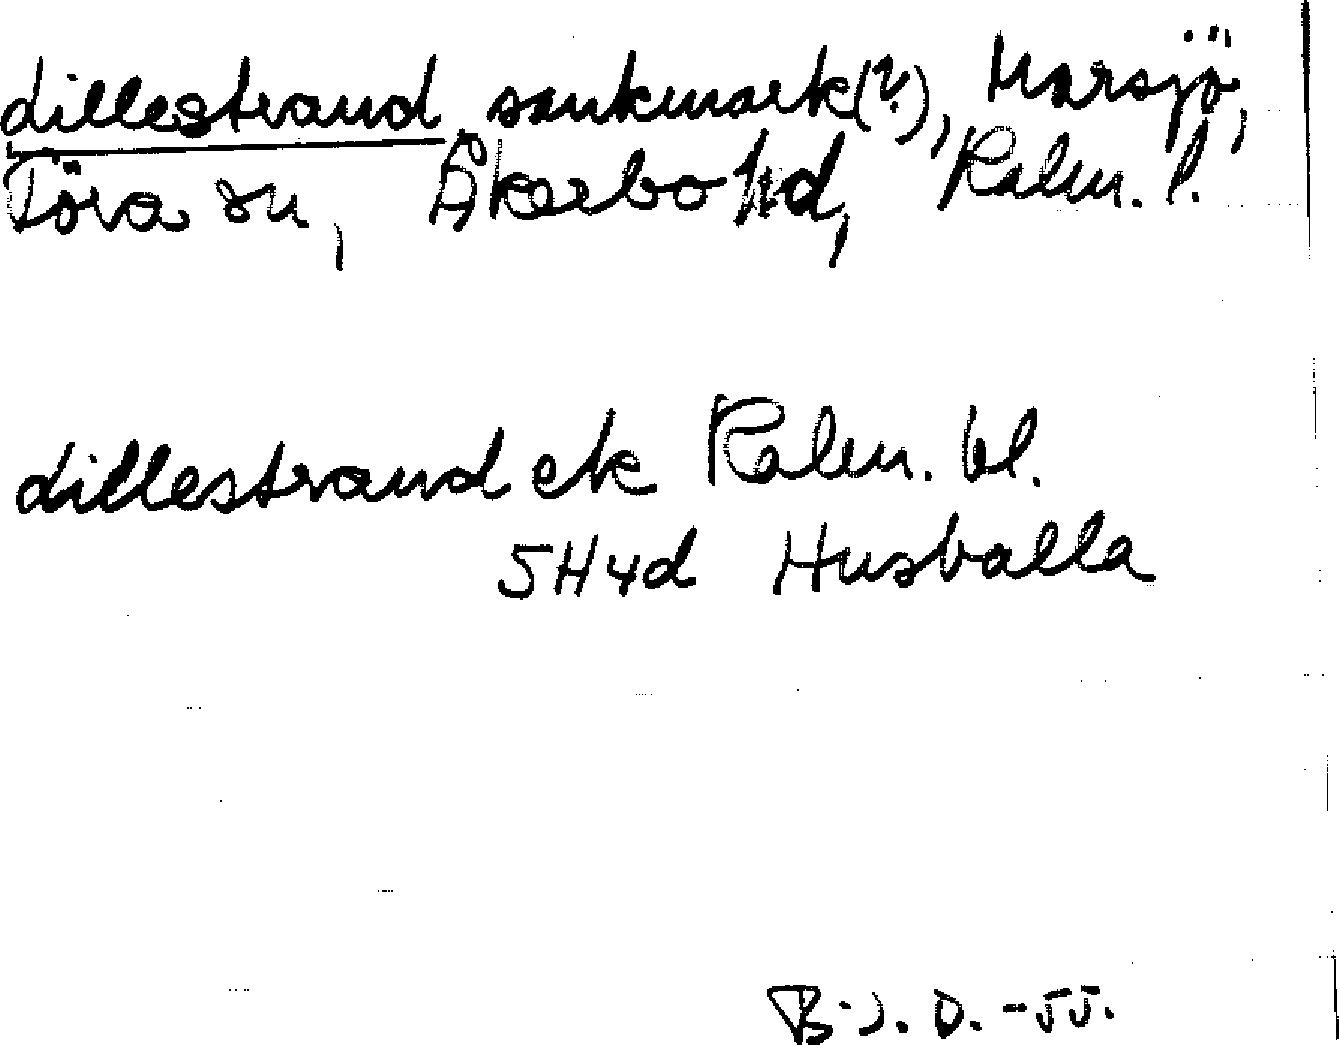 Lillestrand sankmark(?), Marsjö,
Föra sn, Åkerbo hd, Kalm. l.
Lillestrand ek Kalm. bl.
5H4d Husvalla
B.J.D. -55.